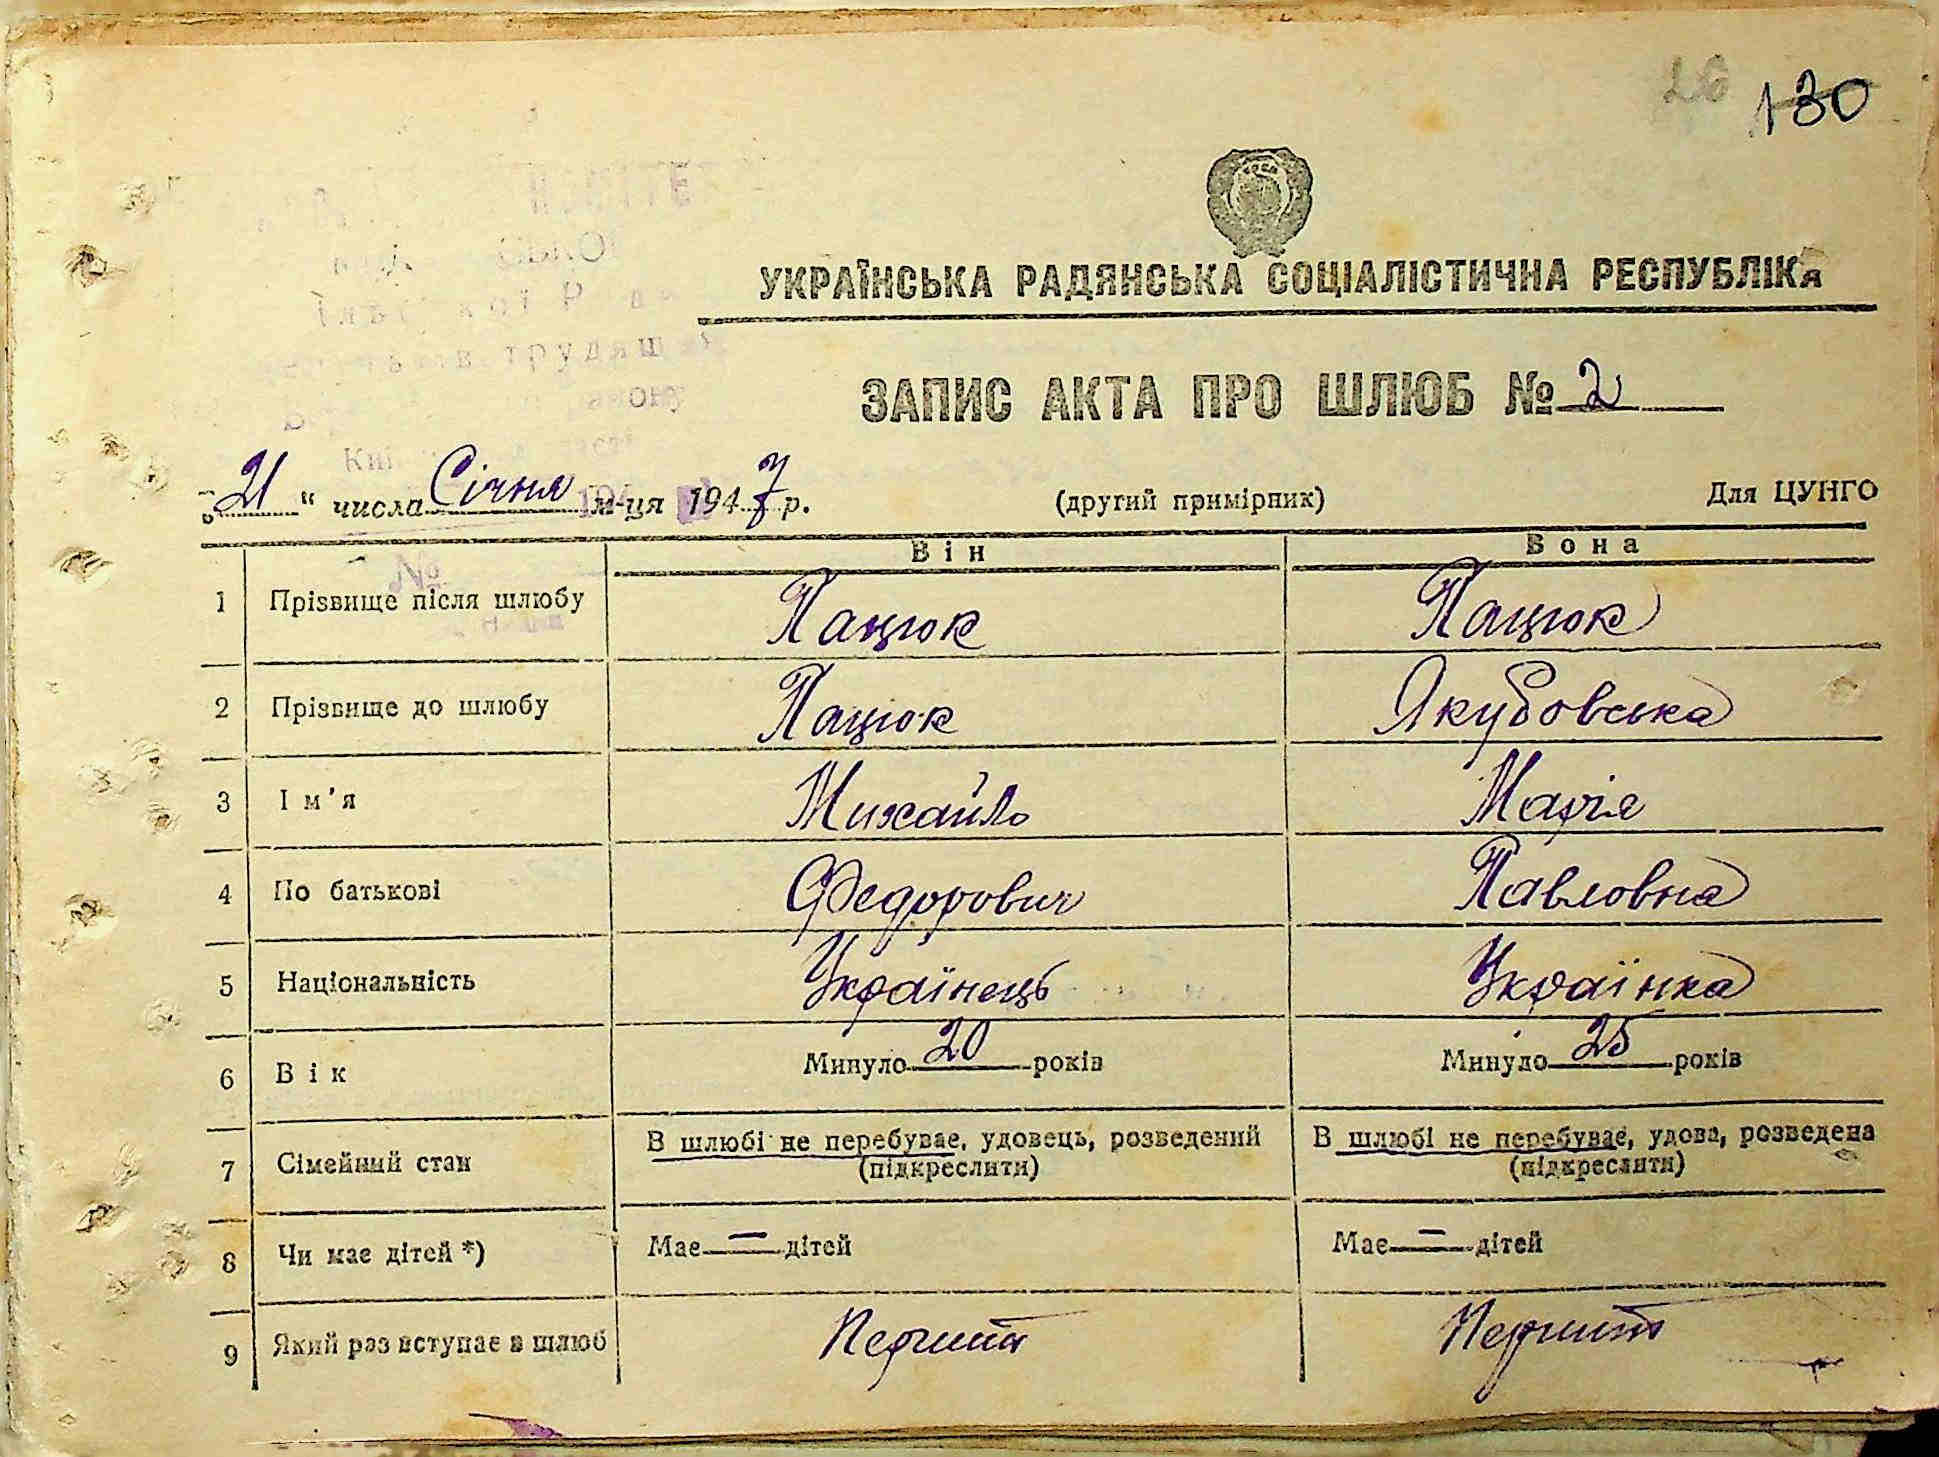 130
УКРАЇНСЬКА РАДЯНСЬКА СОЦІАЛІСТИЧНА РЕСПУБЛІКА
ЗАПИС АКТА ПРО ШЛЮБ № 2
„21“ числа Січня м-ця 1947 р. (другий примірник) Для ЦУНГО
Він Вона
1 Прізвище після шлюбу Пацюк Пацюк
2 Прізвище до шлюбу Пацюк Якубовська
3 Ім’я Михайло Марія
4 По батькові Федорович Павловна
5 Національність Українець Українка
6 Вік Минуло 20 років Минуло 25 років
7 Сімейний стан В шлюбі не перебуває, удовець, розведений В шлюбі не перебуває, удова, розведена
(підкреслити) (підкреслити)
8 Чи має дітей *) Має — дітей Має — дітей
9 Який раз вступає в шлюб